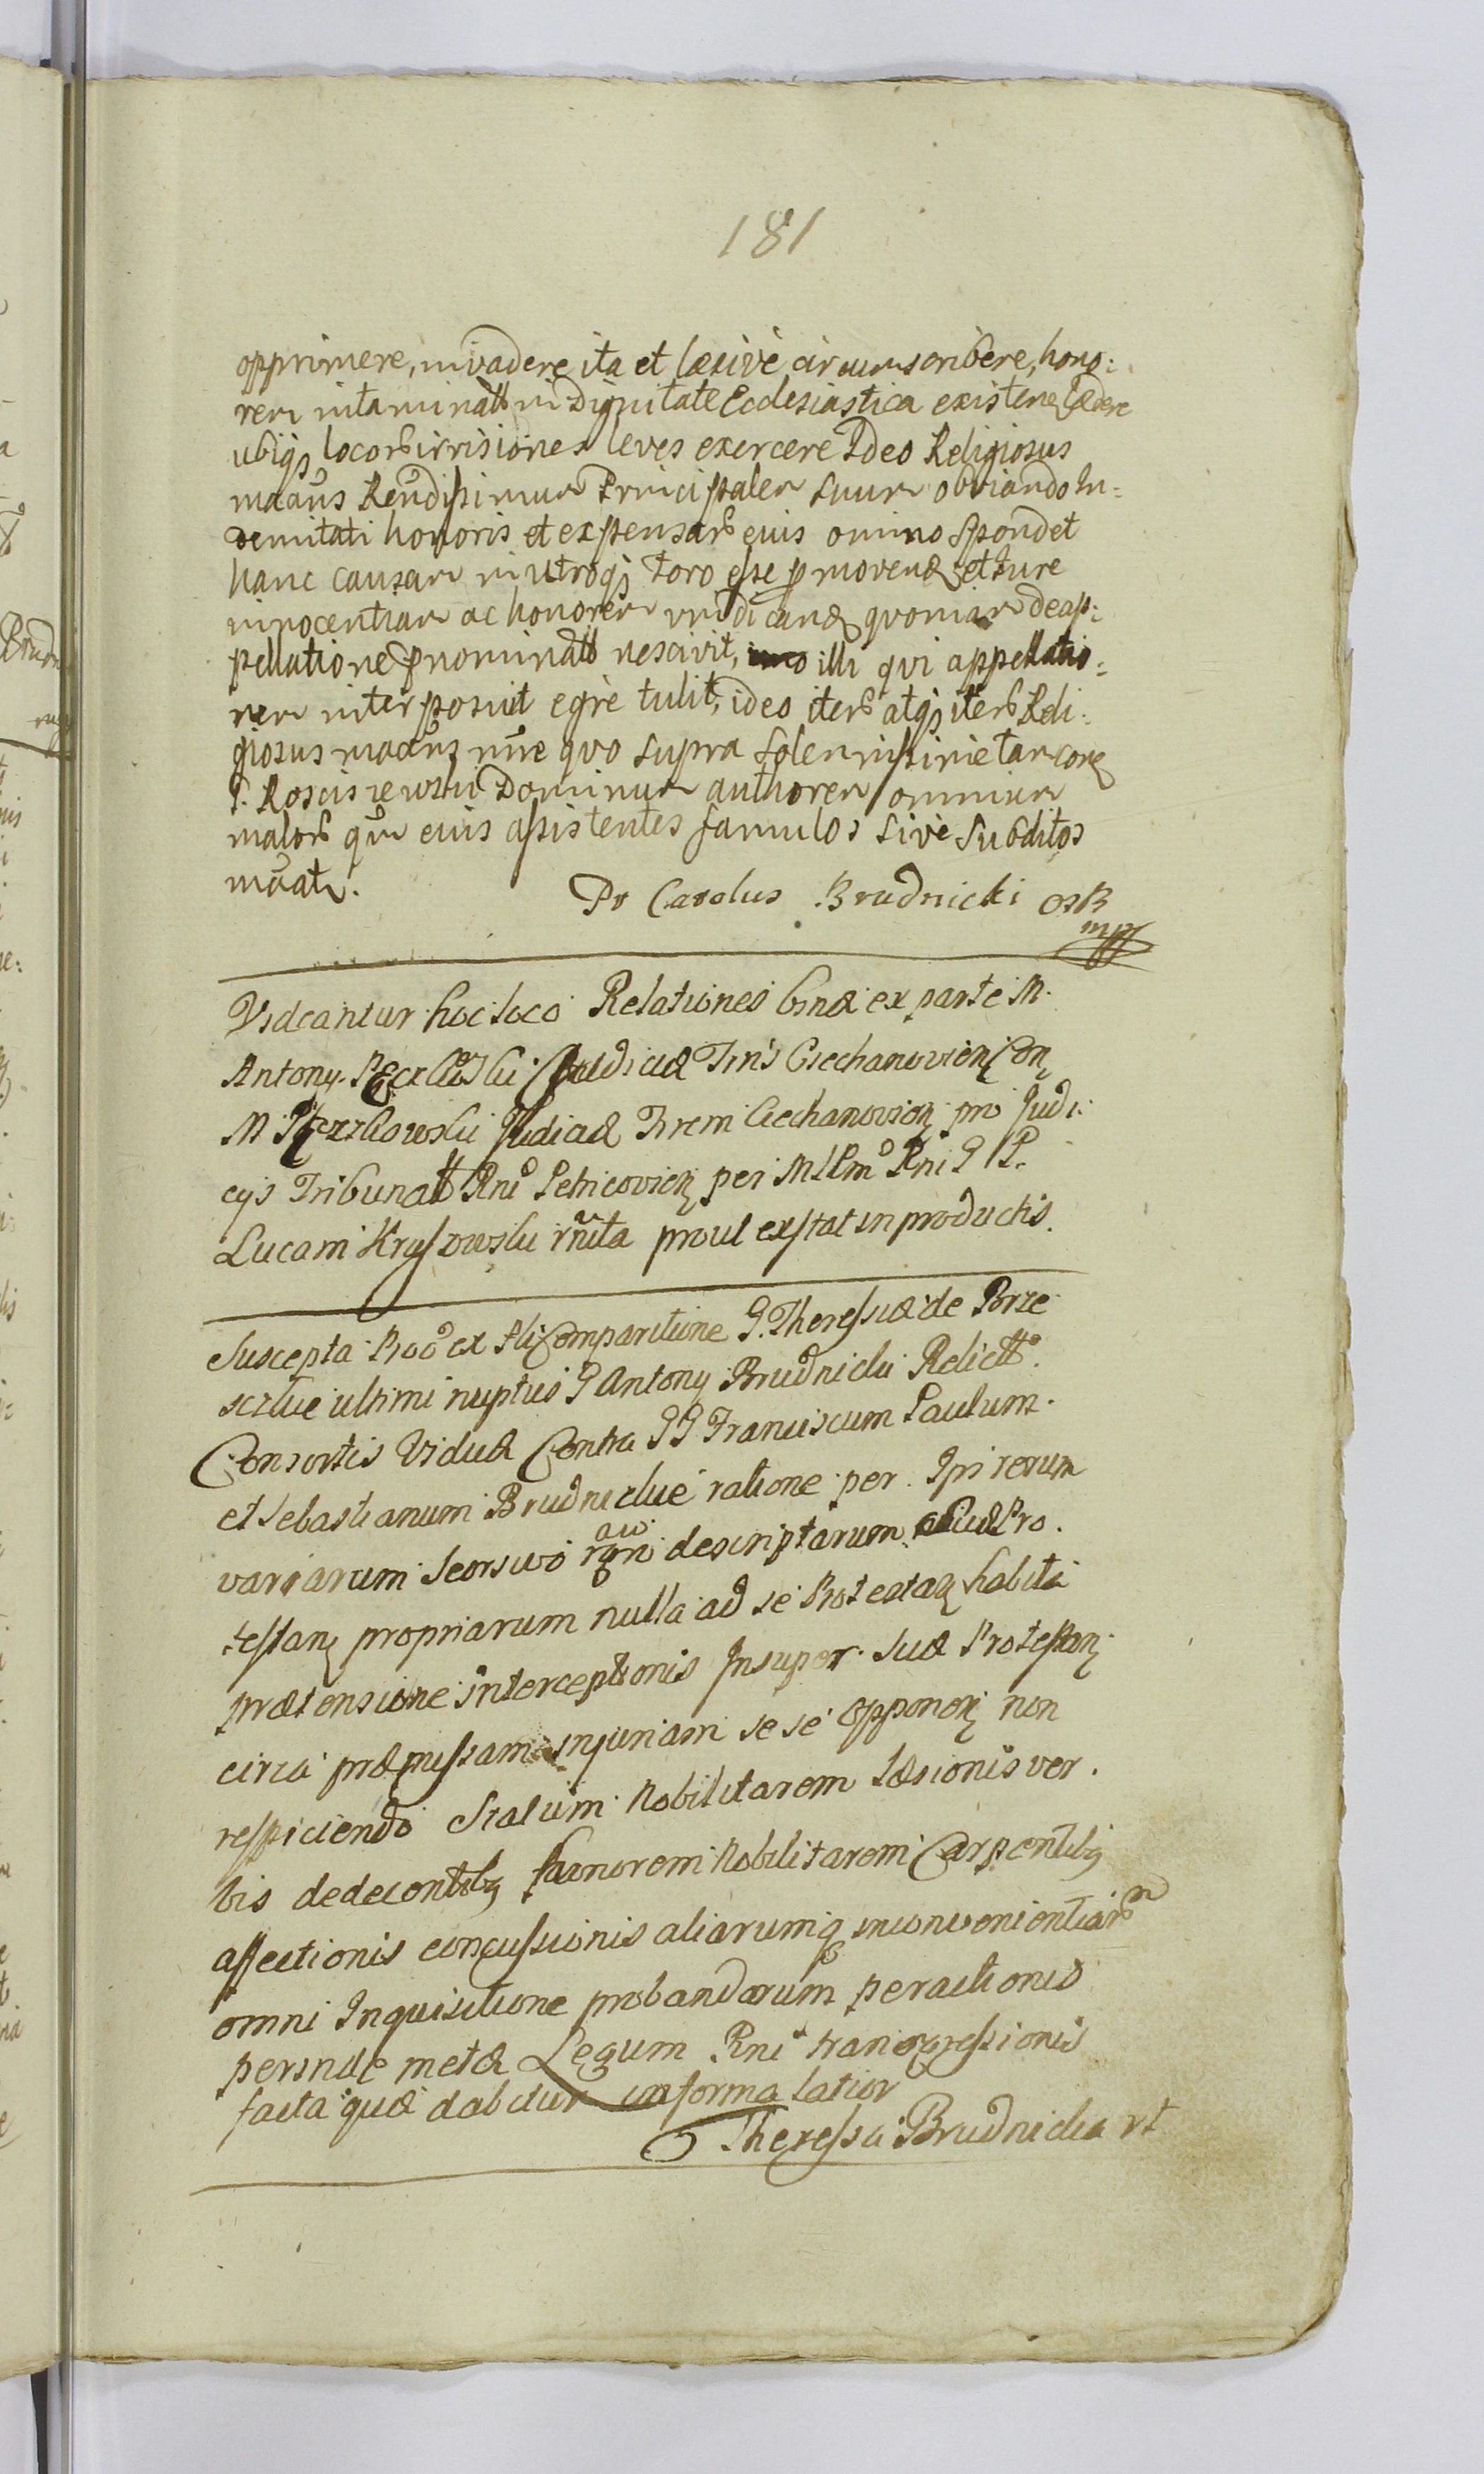 181
opprimere, invadere ita et læsivè circumscribere, hono:
rem intaminatt in Dignitate Ecclesiastica existen lædere
ubiqȝ locorb irrisiones leves exercere Ideo Religiosus
mããns Rendissimum Principalem Suum obviando In:
demnitati honoris et expensarb eius omino Spondet
hanc causam in utroqȝ Foro esse pmovend et Jure
innocentiam ac honorem vindicand qvoniam de ap:
pellatione pnominatt nescivit, illi qvi appellatio:
nem interposuit egrè tulit, ideo iterb atqȝ iterb Reli:
giosus mããns nñe qvo supra solennissimie tam con
P. Kosciszewski Dominum authorem omnium
malorb qm eius assistentes famulos sivè Subditos
mãat.
Pr Carolus Brudnicki OSB
mpp
Videantur hoc loco Relationes binæ ex parte M.
Antony Judicis Trris Ciechanovien Con
M. Judicæ Trrem Ciechanovien pro Judi:
cys Tribunatt Rni Petricovien per M Rni P
Lucam rñita prout exstat in productis.
Suscepta Comparitione G. Theressiæ de Porze
sckie ultimi nuptus G Antony Brudnicki Relictt
Consortis Viduæ Contra GG Franciscum Paulum
et Sebastianum Brudnickie ratione per Ipi rerum
variarum Seorsivo descriptarum Pro
testan propriarum nulla ad se Protestan habita
prætensione interceptionis Insuper Suæ Protestan
circa præmissam injuriam se sè opponen non
respiciendo Statum Nobilitarem læsionis ver
bis dedecentibȝ honorem Nobilitarem Carpentibȝ
affectionis concussionis aliarumq inconvenientiarbm
omni Inquisitione probandorum peractionis
perinde metæ Legum Rni transgressionis
facta quæ dabitur in forma latior
Theressa Brudnicka rt